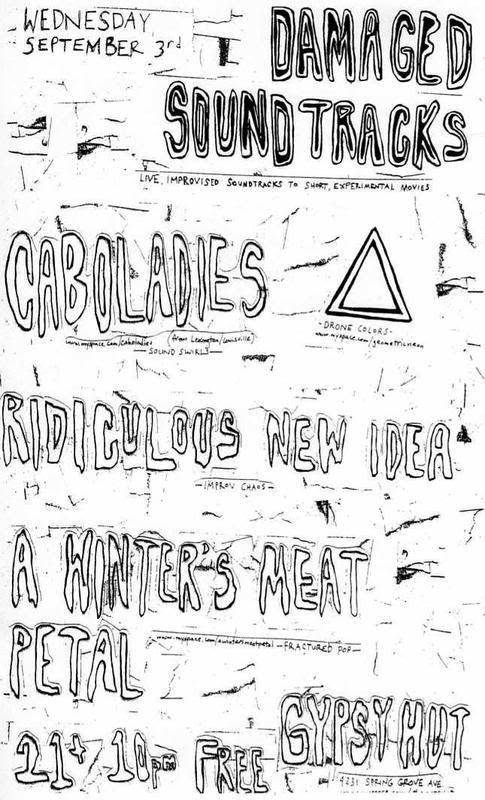 WEDNESDAY
SEPTEMBER 3rd
DAMAGED
SOUNDTRACKS
LIVE, IMPROVISED SOUNDTRACKS TO SHORT, EXPERIMENTAL MOVIES
CABOLADIES
www.myspace.com/caboladies (from Lexington/Louisville)
-SOUND SWIRLS-
-DRONE COLORS-
www.myspace.com/geometricneon
RIDICULOUS NEW IDEA
-IMPROV CHAOS-
A WINTER'S MEAT
PETAL
www.myspace.com/awintersmeatpetal -FRACTURED POP-
GYPSY HUT
21+ 10pm FREE
4231 SPRING GROVE AVE